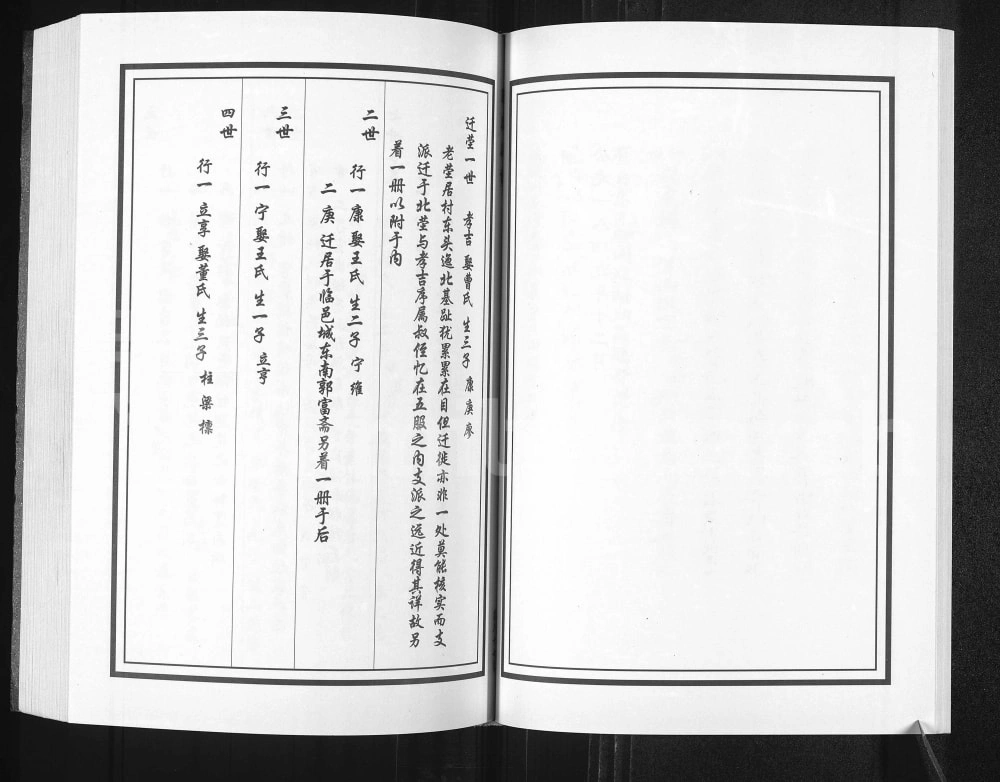 迁茔一世 孝吉 娶曹氏 生三子 康 庚 廖
老茔居村东头迤北基趾犹累累在目但迁徙亦非一处莫能核实而支
派迁于北茔与孝吉序属叔侄忆在五服之内支派之远近得其详故另
着一册以附于内
二世 行一 康 娶王氏 生二子 宁 维
二 庚 迁居于临邑城东南郭富斋另着一册于后
三世 行一 宁 娶王氏 生一子 立亨
四世 行一 立享 娶董氏 生三子 柱 梁 標